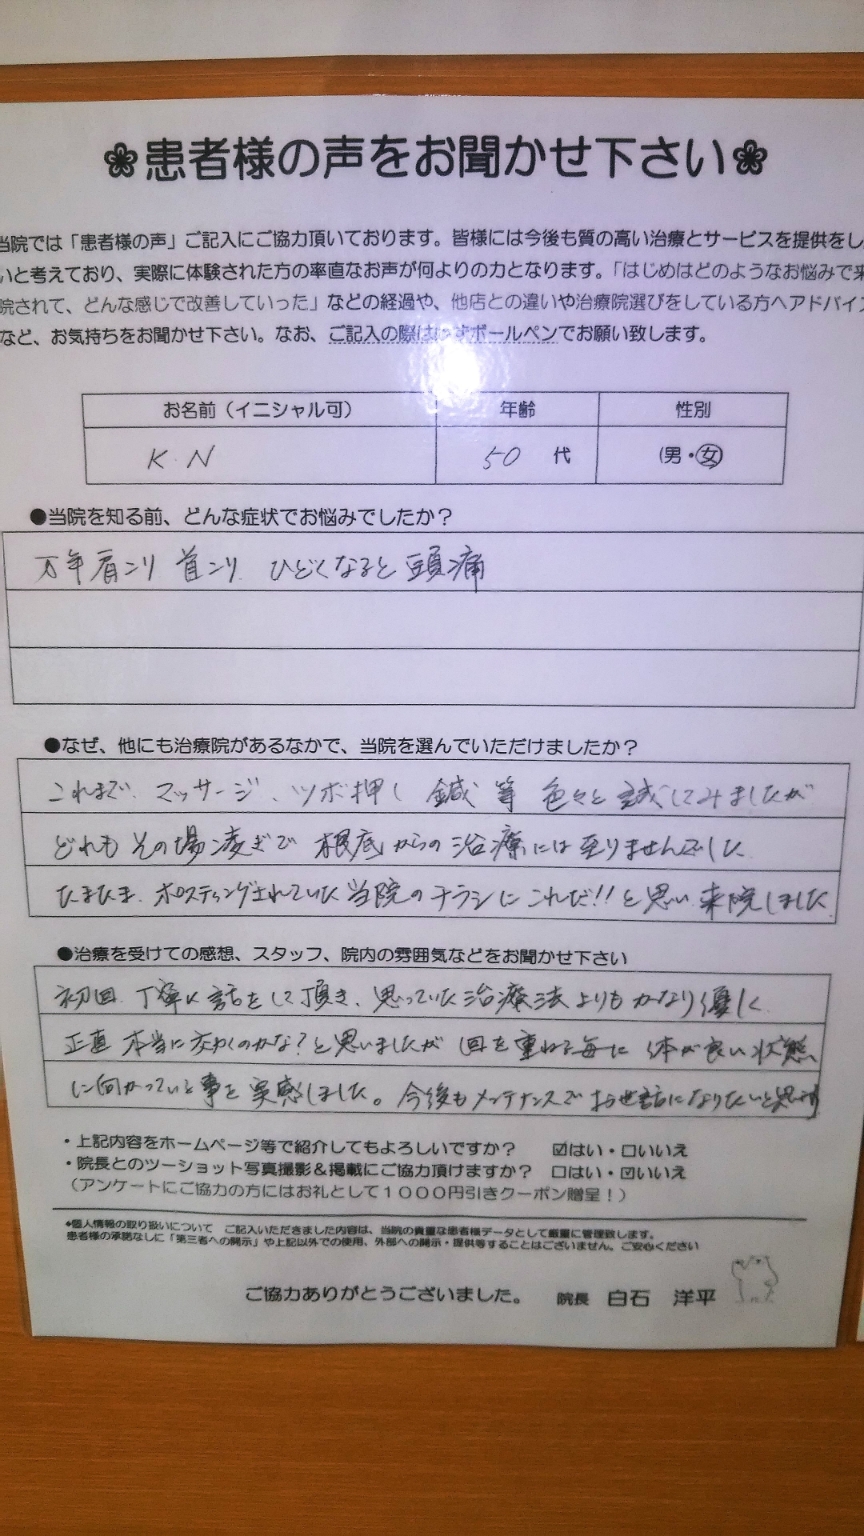 ❀患者様の声をお聞かせ下さい❀
当院では「患者様の声」ご記入にご協力頂いております。皆様には今後も質の高い治療とサービスを提供をし
いと考えており、実際に体験された方の率直なお声が何よりの力となります。「はじめはどのようなお悩みで来
院されて、どんな感じで改善していった」などの経過や、他店との違いや治療院選びをしている方へアドバイス
など、お気持ちをお聞かせ下さい。なお、ご記入の際は必ずボールペンでお願い致します。
お名前（イニシャル可） 年齢 性別
K.N 50 代 (男・女)
●当院を知る前、どんな症状でお悩みでしたか？
万年肩こり 首こり ひどくなると頭痛
●なぜ、他にも治療院があるなかで、当院を選んでいただけましたか？
これまで、マッサージ、ツボ押し 鍼 等 色々と試してみましたが
どれも その場凌ぎで 根底からの治療には至りませんでした
たまたま、ポスティングされていた当院のチラシにこれだ!!と思い 来院しました
●治療を受けての感想、スタッフ、院内の雰囲気などをお聞かせ下さい
初回、丁寧に話をして頂き、思っていた治療法よりもかなり優しく
正直 本当に効くのかな？と思いましたが 回を重ねる毎に 体が良い状態
に向かっている事を実感しました。今後もメンテナンスでお世話になりたいと思います
・上記内容をホームページ等で紹介してもよろしいですか？ ☑はい・□いいえ
・院長とのツーショット写真撮影＆掲載にご協力頂けますか？ □はい・☑いいえ
（アンケートにご協力の方にはお礼として１０００円引きクーポン贈呈！）
*個人情報の取り扱いについて ご記入いただきました内容は、当院の貴重な患者様データとして厳重に管理致します。
患者様の承諾なしに「第三者への開示」や上記以外での使用、外部への開示・提供等することはございません。ご安心ください
ご協力ありがとうございました。 院長 白石 洋平